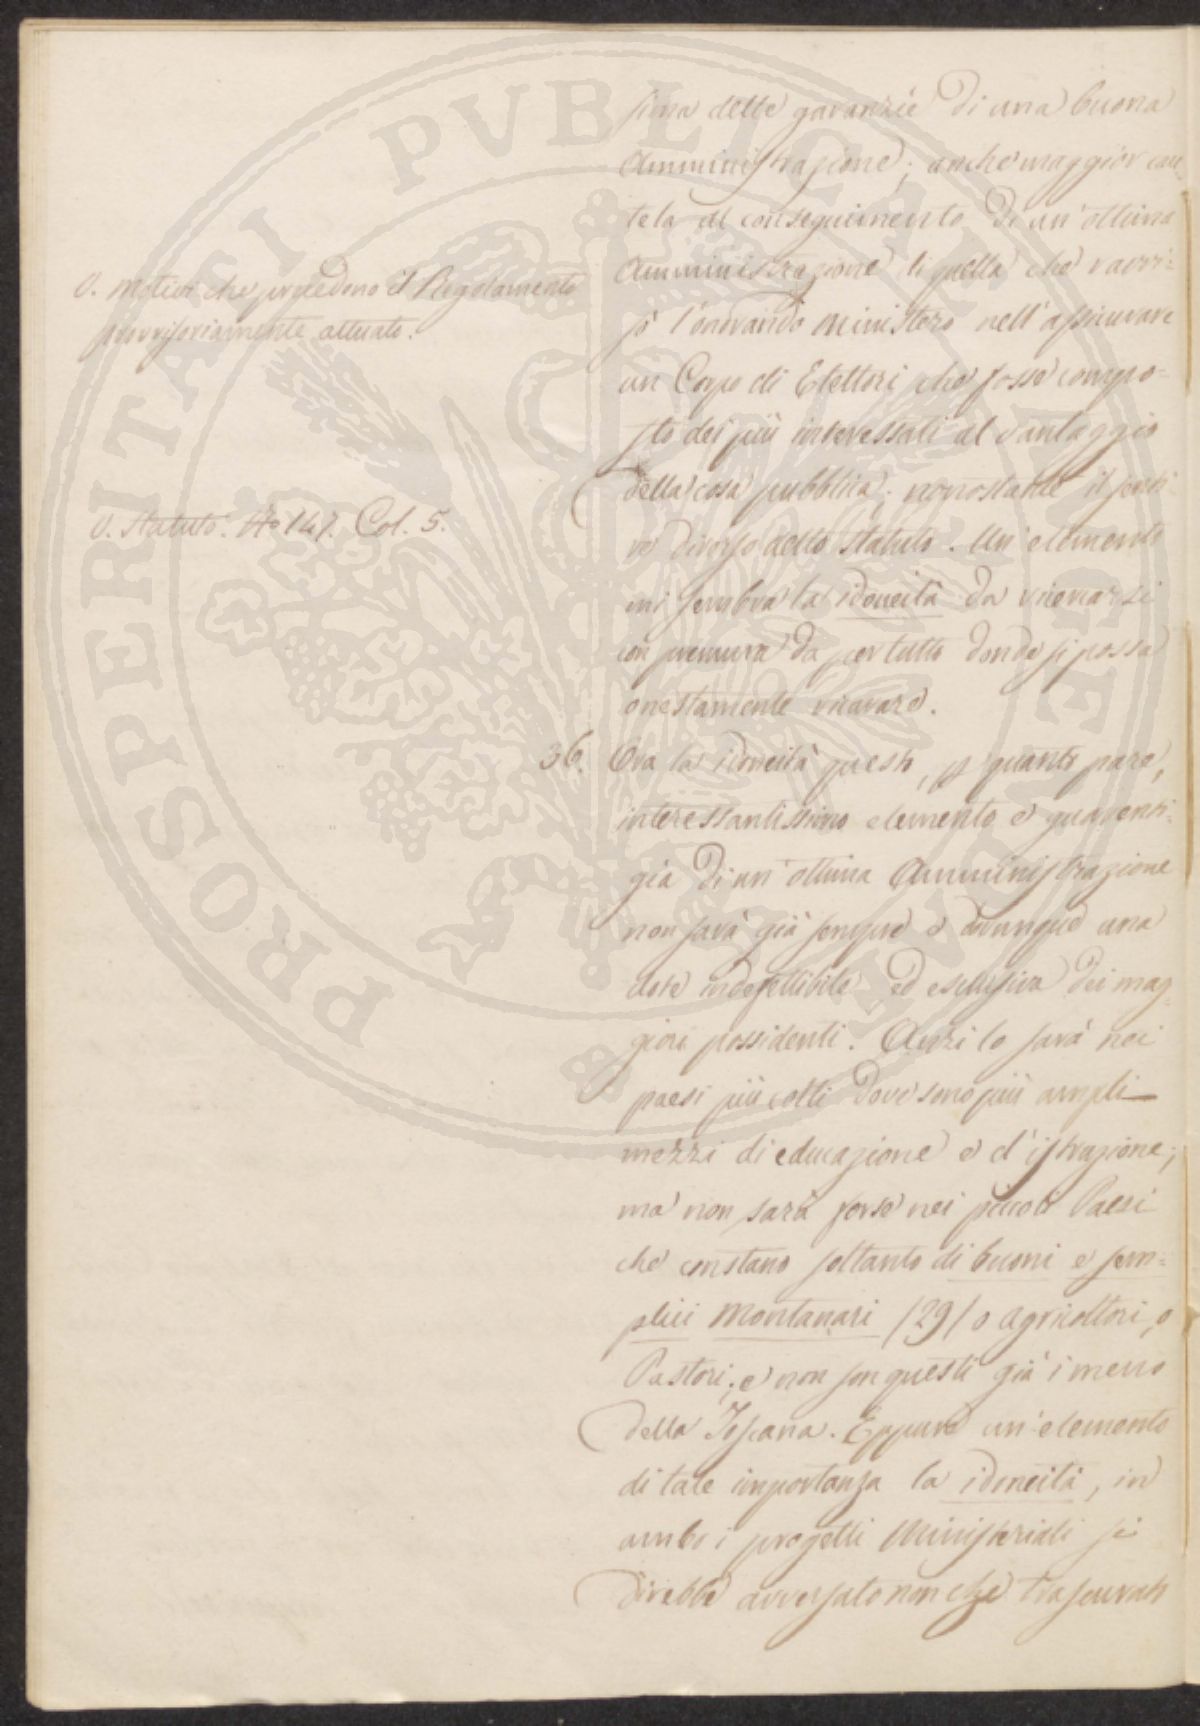 sima delle garanzie di una buona
Amministrazione; anche maggior cau-
tela al conseguimento di un'ottima
Amministrazione di quella che ravvi-
sò l'onorando Ministero nell'assicurare
V. Motivi che precedono il Regolamento
provvisoriamente attuato.
un Corpo di Elettori che fosse compo-
sto dei più interessati al vantaggio
della cosa pubblica; nonostante il
V. Statuto. Col. 5.
diverso dello Statuto. Un elemento
mi sembra la idoneità da ricercarsi
con premura da per tutto donde si possa
onestamente ricavare.
36. Ora la idoneità questo, p quanto pare,
interessantissimo elemento e guarenti-
gia di un'ottima Amministrazione
non sarà già sempre e dovunque una
dote indefettibile ed esclusiva dei mag-
giori possidenti. Anzi lo sarà nei
paesi più colti dove sono più ampli
mezzi di educazione e d'istruzione;
ma non sarà forse nei piccoli Paesi
che constano soltanto di buoni e sem-
plici Montanari (29) o agricoltori, o
Pastori; e non son questi già i meno
della Toscana. Eppure un'elemento
di tale importanza la idoneità, in
ambo i progetti Ministeriali si
direbbe avversato non che trascurato
PROSPERITATI PVBLICAE AVGENDAE